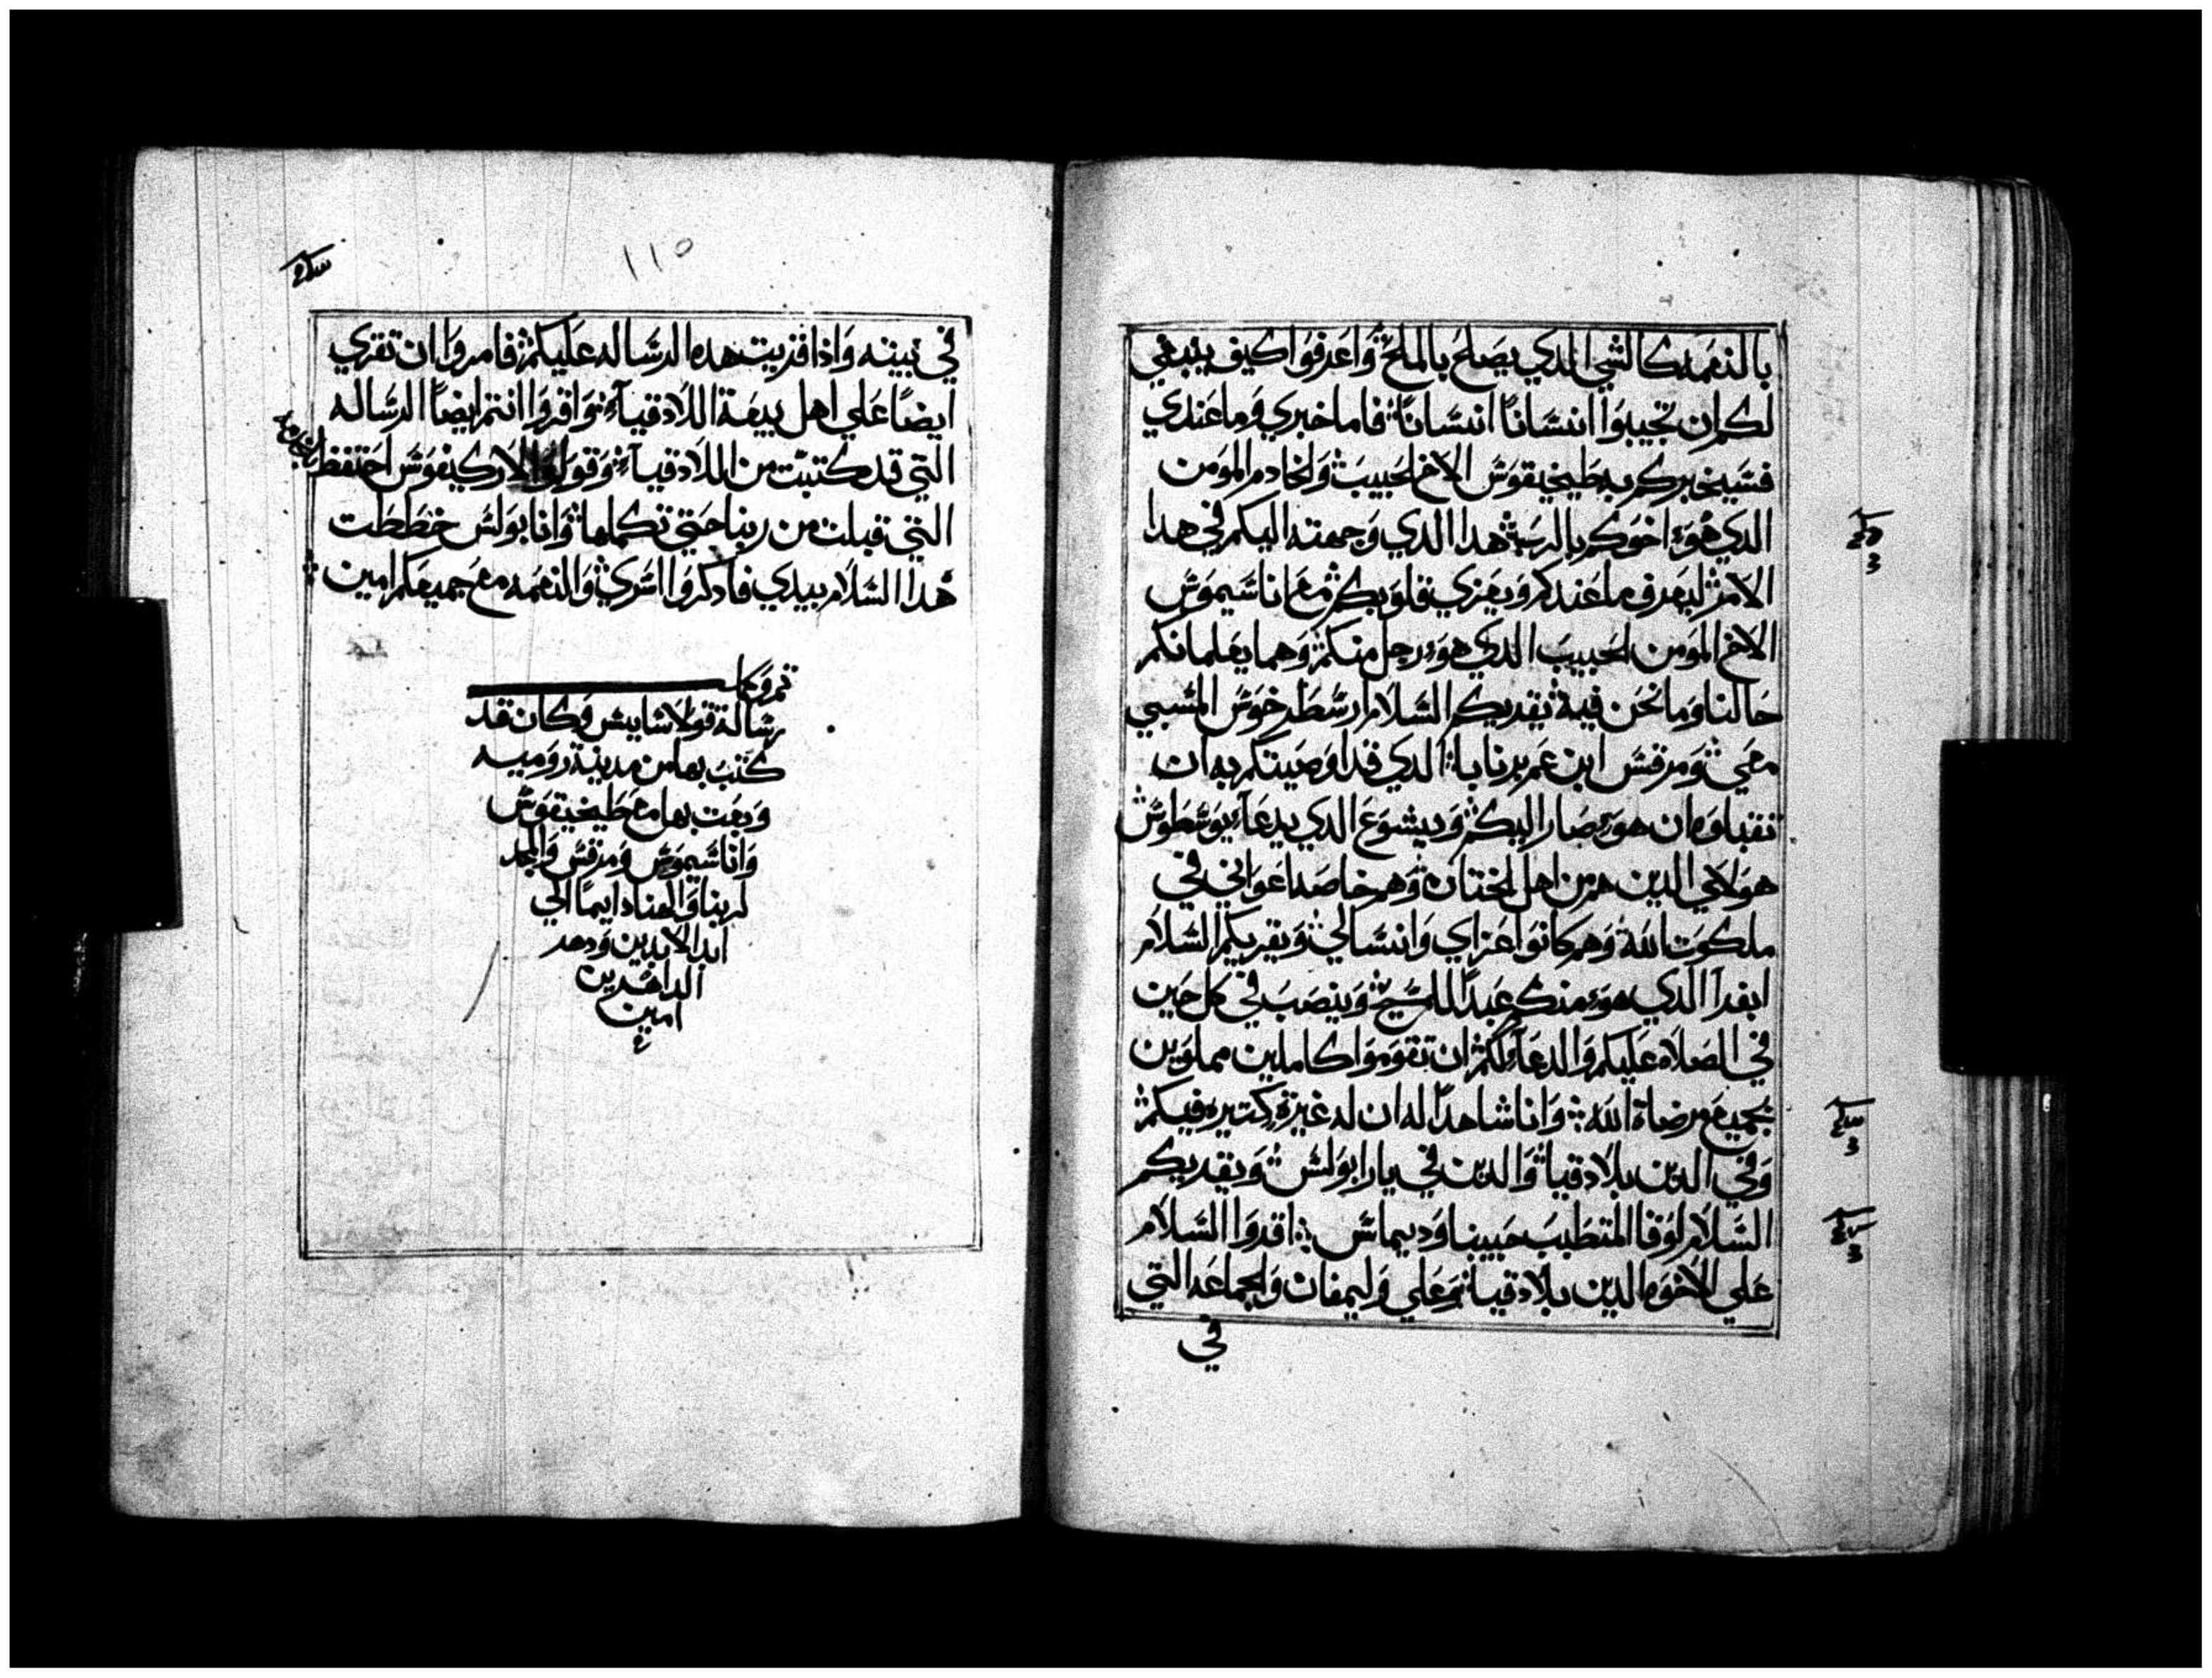 بالنعمه كالشي الذي يصلح بالملح وَاعرفوَا كيف ينبغي
لكم ان تجيبوَا انسَانًا انسَانًا فاما خبري وَما عندي
فسَيخبركم به طيخيقوَسَ الاخ الحبيبَ وَالخادم الموَمن
الدي هوَ اخوَكم بالربَ هدا الدي وَجهته اليكم في هدا
الامر ليعرف ما عندكم وَيعزي قلوَبكم مع اناسَيموَسَ
الاخ الموَمن الحبيبَ الدي هوَ رجل منكم وَهما يعلمانكم
حَالنا وَما نحَن فيه يقريكم السَلام ارسَطرخوَسَ المسَبي
معي وَمرقسَ ابن عم برنابا الدي قد اوَصيتكم به ان
تقبلوَه ان هوَ صار اليكم وَيشوَعَ الدي يدعَا يوَسَطوَسَ
هوَلاي الدين هم من اهل الختانه وَهم خاصه اعوَاني في
ملكوَت الله وَهم كانوَا عَزاي وَانسَالي وَيقريكم السَلام
ابفرا الدي هوَ منكم عَبدًا للمسَيح وَينصَبَ في كل حَين
في الصَلاه عَليكم وَالدعَا لكم ان تقوَموَا كاملين مملوَين
بجميع مرضاة الله وَانا شاهدًا له ان له غيرة كتيره فيكم
وَفي الدين بلادقيا وَالدين في يارابوَلسَ وَيقريكم
السَلام لوَقا المتطببَ حَبيبنا وَديماسَ اقروَا السَلام
عَلي الاخوَه الدين بلادقيا وَعَلي وَليمفان وَالجماعَه التي
في
١١٥
في بيته وَاذا قريت هده الرسَاله عَليكم فامروَا ان تقري
ايضًا عَلي اهل بيعَة اللادقيا وَاقروَا انتم ايضًا الرسَاله
التي قد كتبت من اللادقيا وَقوَلوَا لاركيفوَسَ احَتفظ
التي قبلت من ربنا حَتي تكملها وَانا بوَلسَ خططت
هدا السَلام بيدي فادكروَا اسَري وَالنعَمه مع جميعَكم امين
رسَالة قوَلاسَايسَ وَكان قد
كتبَ بها من مدينة روَميه
وَبعَت بها مع طيخيقوَسَ
وَاناسَيموَسَ وَمرقسَ وَالمجد
لربنا وَالهنا دايمًا الي
ابد الابدين وَدهر
الداهرين
امين